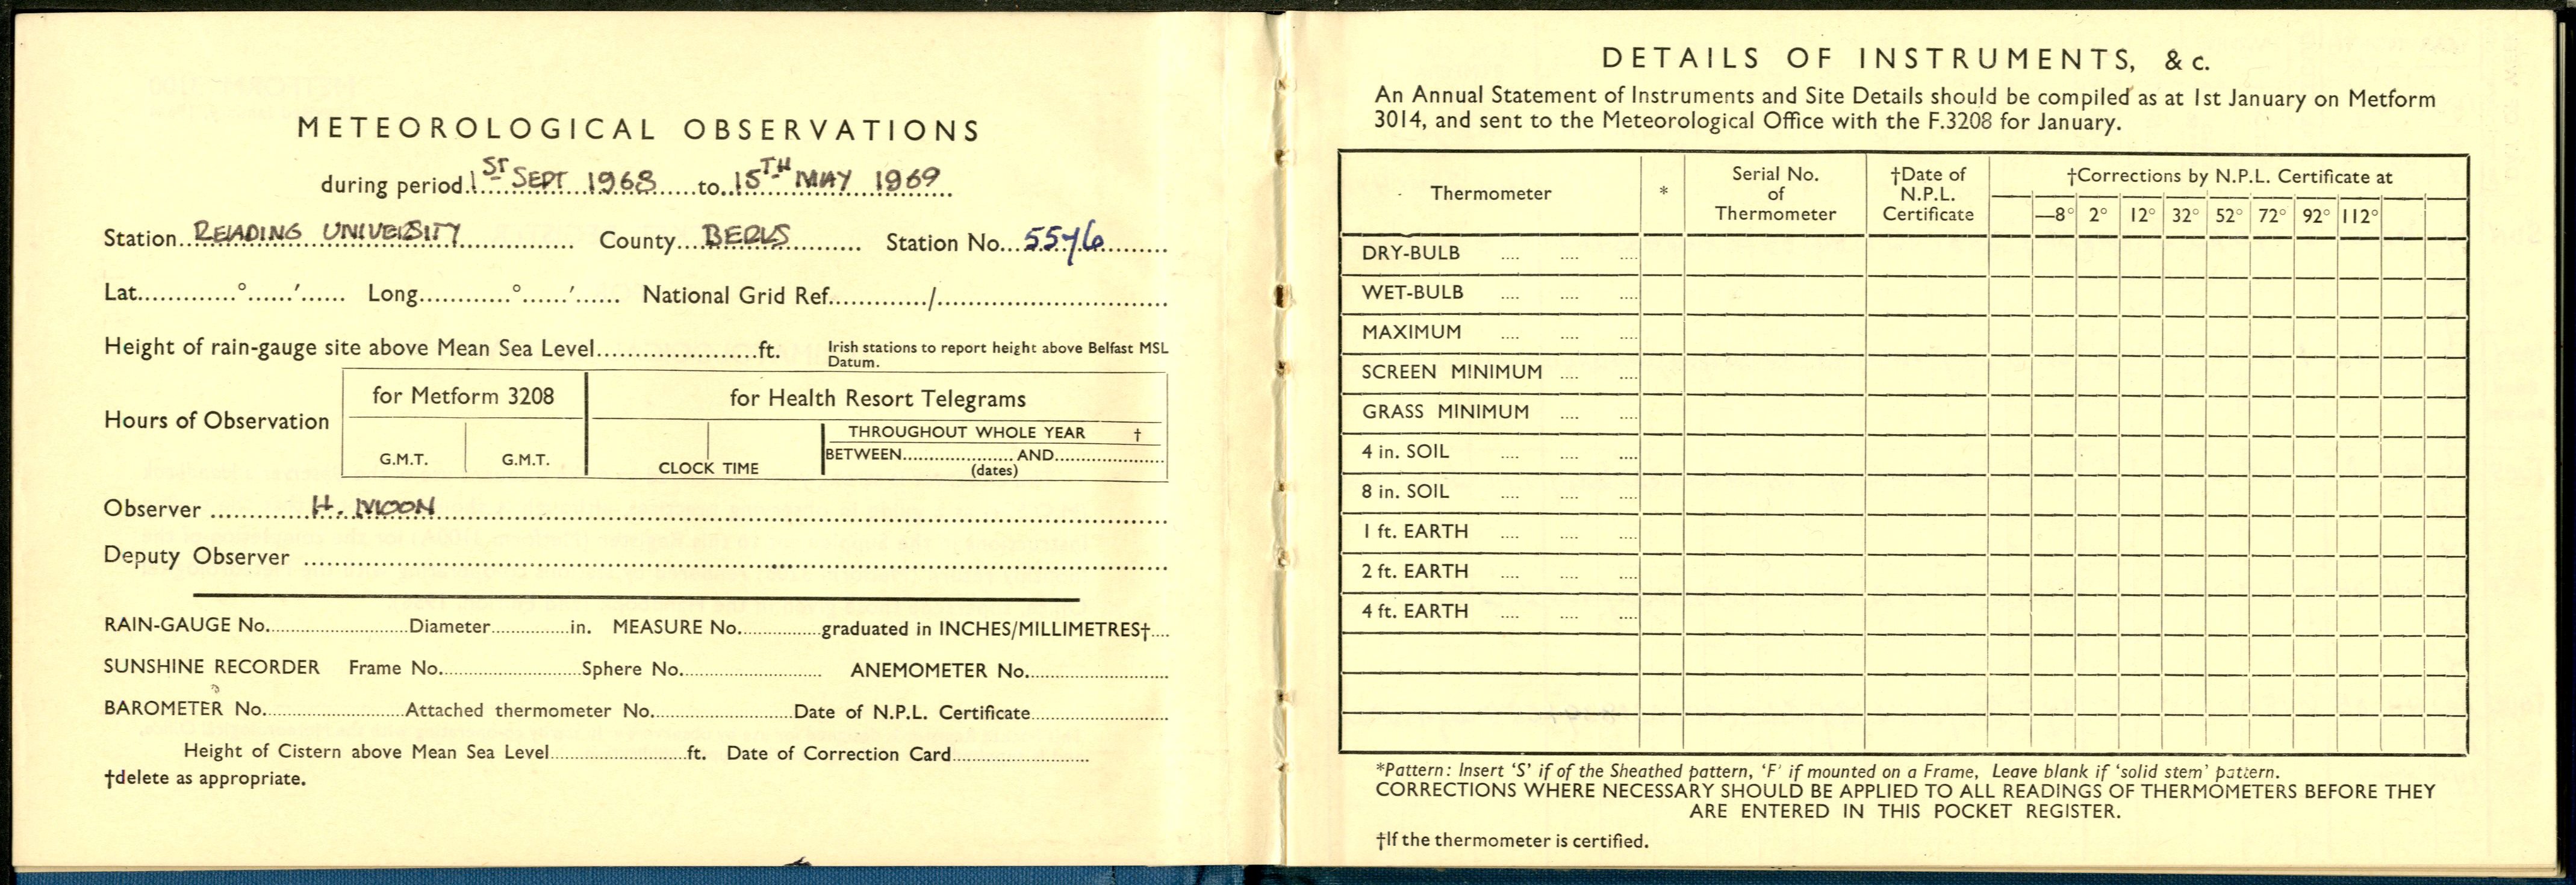 METEOROLOGICAL OBSERVATIONS
during period 1ST SEPT 1968 to 15TH MAY 1969
Station READING UNIVERSITY County BERKS Station No. 5576
Lat.............°......′...... Long............°......′...... National Grid Ref............/
Height of rain-gauge site above Mean Sea Level....................ft. Irish stations to report height above Belfast MSL
Datum.
Hours of Observation
for Metform 3208
for Health Resort Telegrams
G.M.T. G.M.T.
CLOCK TIME
THROUGHOUT WHOLE YEAR †
BETWEEN....................AND....................
(dates)
Observer H. MOON
Deputy Observer
RAIN-GAUGE No. Diameter in. MEASURE No. graduated in INCHES/MILLIMETRES†
SUNSHINE RECORDER Frame No. Sphere No. ANEMOMETER No.
BAROMETER No. Attached thermometer No. Date of N.P.L. Certificate
Height of Cistern above Mean Sea Level ft. Date of Correction Card
†delete as appropriate.
DETAILS OF INSTRUMENTS, &c.
An Annual Statement of Instruments and Site Details should be compiled as at 1st January on Metform
3014, and sent to the Meteorological Office with the F.3208 for January.
Thermometer
*
Serial No.
of
Thermometer
†Date of
N.P.L.
Certificate
†Corrections by N.P.L. Certificate at
—8° 2° 12° 32° 52° 72° 92° 112°
DRY-BULB
WET-BULB
MAXIMUM
SCREEN MINIMUM
GRASS MINIMUM
4 in. SOIL
8 in. SOIL
1 ft. EARTH
2 ft. EARTH
4 ft. EARTH
*Pattern: Insert ‘S’ if of the Sheathed pattern, ‘F’ if mounted on a Frame, Leave blank if ‘solid stem’ pattern.
CORRECTIONS WHERE NECESSARY SHOULD BE APPLIED TO ALL READINGS OF THERMOMETERS BEFORE THEY
ARE ENTERED IN THIS POCKET REGISTER.
†If the thermometer is certified.